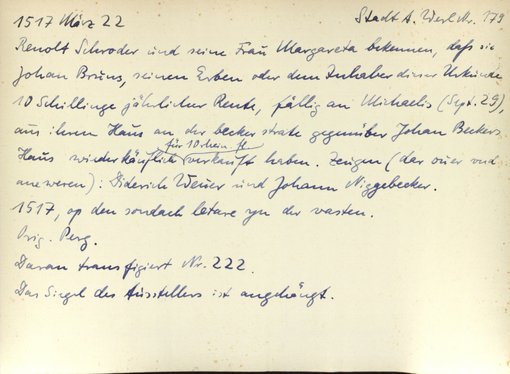 1517 März 22 Stadt A. Werl Nr. 179
Renolt Schroder und seine Frau Margareta bekennen, daß sie
Johan Bruns, seinen Erben oder dem Inhaber dieser Urkunde
10 Schillinge jährlicher Rente, fällig an Michaelis (Sept. 29),
aus ihrem Haus an der becker strate gegenüber Johan Beckers
für 10 rhein. fl
Haus wiederkäuflich verkauft haben. Zeugen (dar over vnd
ane weren): Diderich und Johann Niggebecker.
1517, op den sondach letare yn der vasten.
Orig. Perg.
Daran transfigiert Nr. 222.
Das Siegel des Ausstellers ist angehängt.